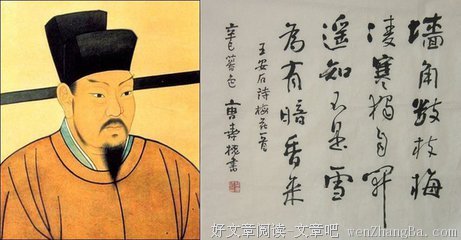 墙角数枝梅
凌寒独自开
遥知不是雪
為有暗香来
王安石诗梅花
辛巳
書
好文章阅读-文章吧-wenZhangBa.Com